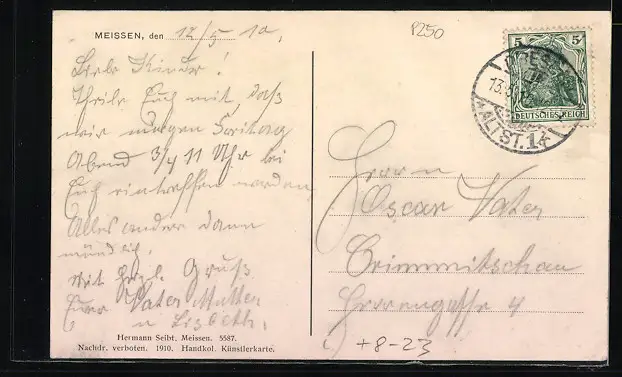 MEISSEN, den 12/5 10.
Liebe Kinder!
Theile Euch mit, daß
wir morgen Freitag
Abend 3/4 11 Uhr bei
Euch eintreffen werden,
Alles andere dann
mündlich.
Mit hzgl. Gruß
Eure Vater Mutter
u Lisbeth.
Hermann Seibt, Meissen. 5587.
Nachdr. verboten. 1910. Handkol. Künstlerkarte.
P250
5 5
DEUTSCHES REICH
DRESDEN
ALTST. 1
Herrn
Oscar Vater
Crimmitschau
4
+8-23